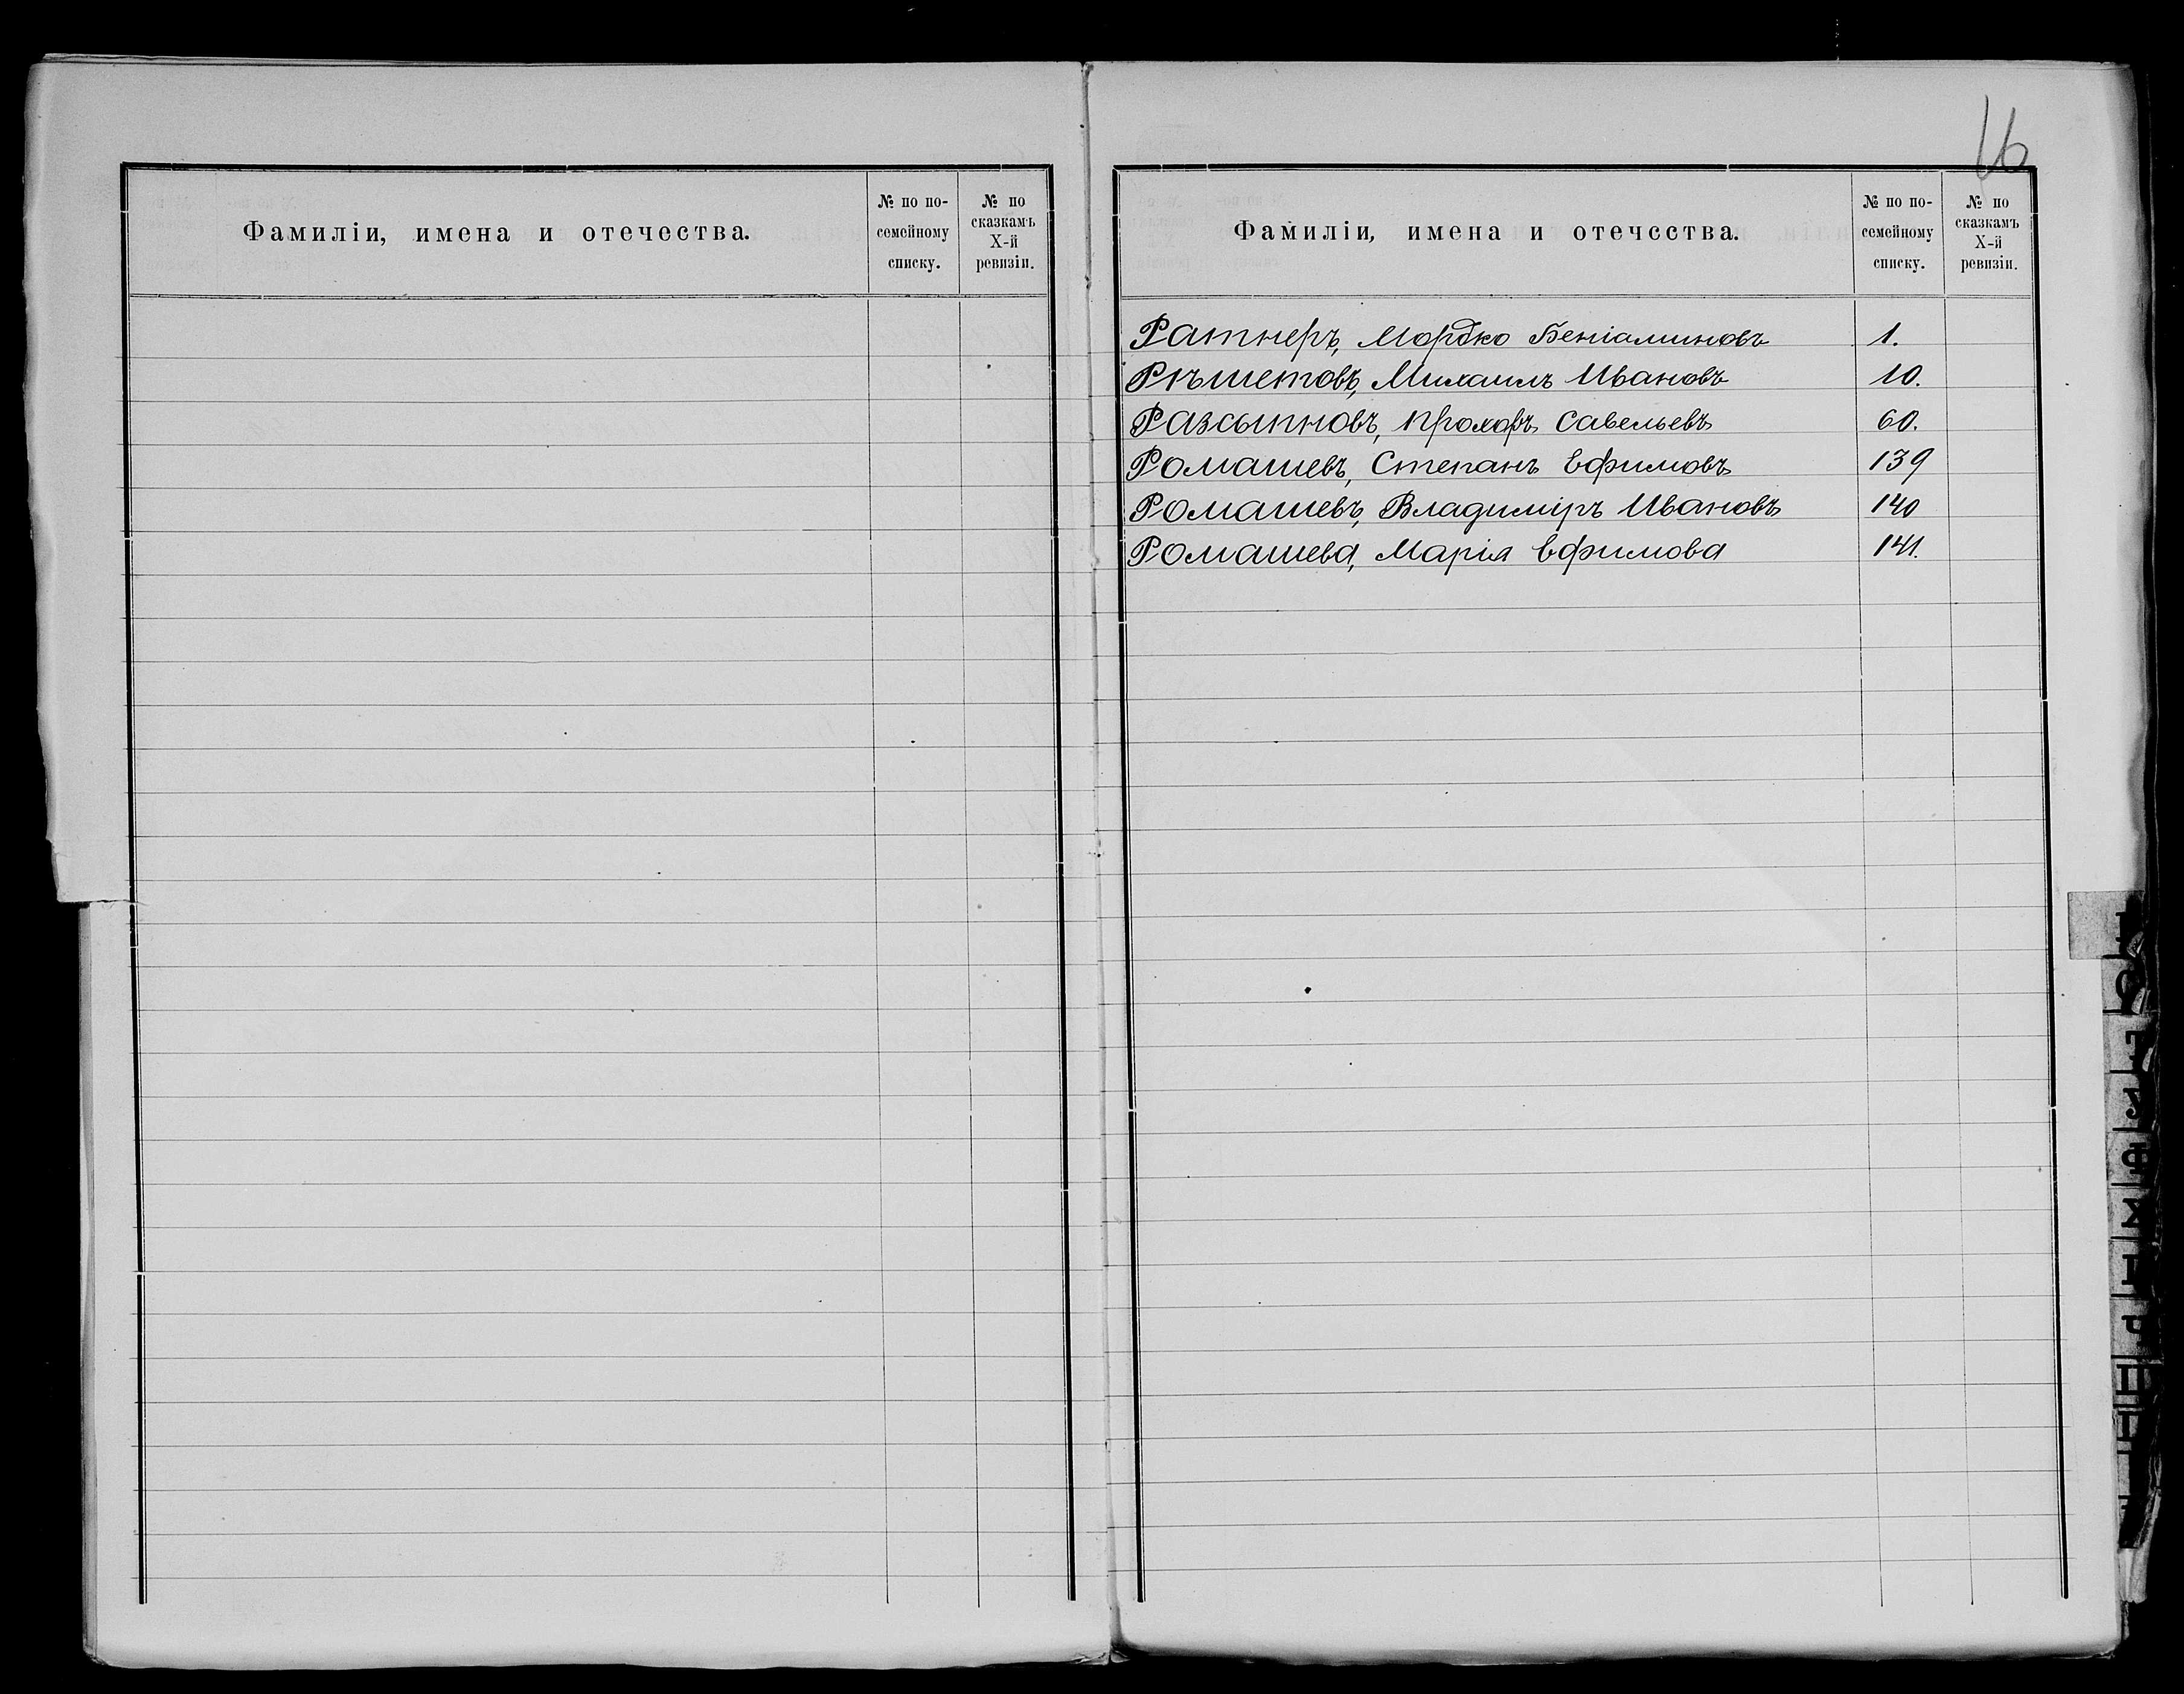 16
Фамиліи, имена и отечества.
№ по по-
семейному
списку.
№ по
сказкамъ
X-й
ревизіи.
Фамиліи, имена и отечества.
№ по по-
семейному
списку.
№ по
сказкамъ
X-й
ревизіи.
Ратнеръ, Мордко Беніаминовъ 1.
Рѣшетовъ, Михаилъ Ивановъ 10.
Разсыпновъ, Прохоръ Савельевъ 60.
Ромашевъ, Степанъ Ефимовъ 139
Ромашевъ, Владиміръ Ивановъ 140
Ромашева, Марія Ефимова 141.